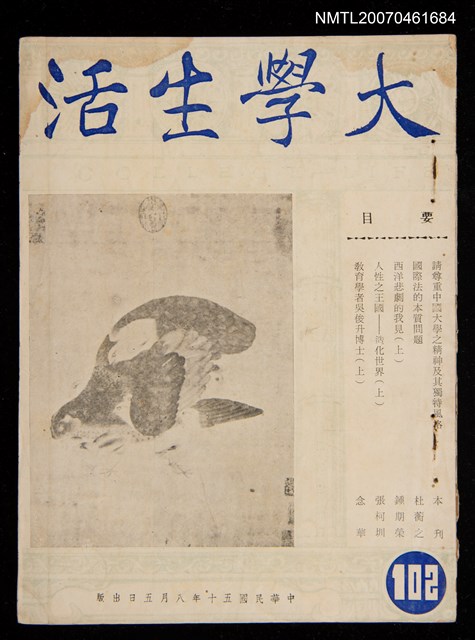 NMTL20070461684
大學生活
要目
請尊重中國大學之精神及其獨特風格 本刊
國際法的本質問題 杜蘅之
西洋悲劇的我見(上) 鍾期榮
人性之王國——文化世界(上) 張柯圳
教育學者吳俊升博士(上) 念華
102
中華民國五十年八月五日出版